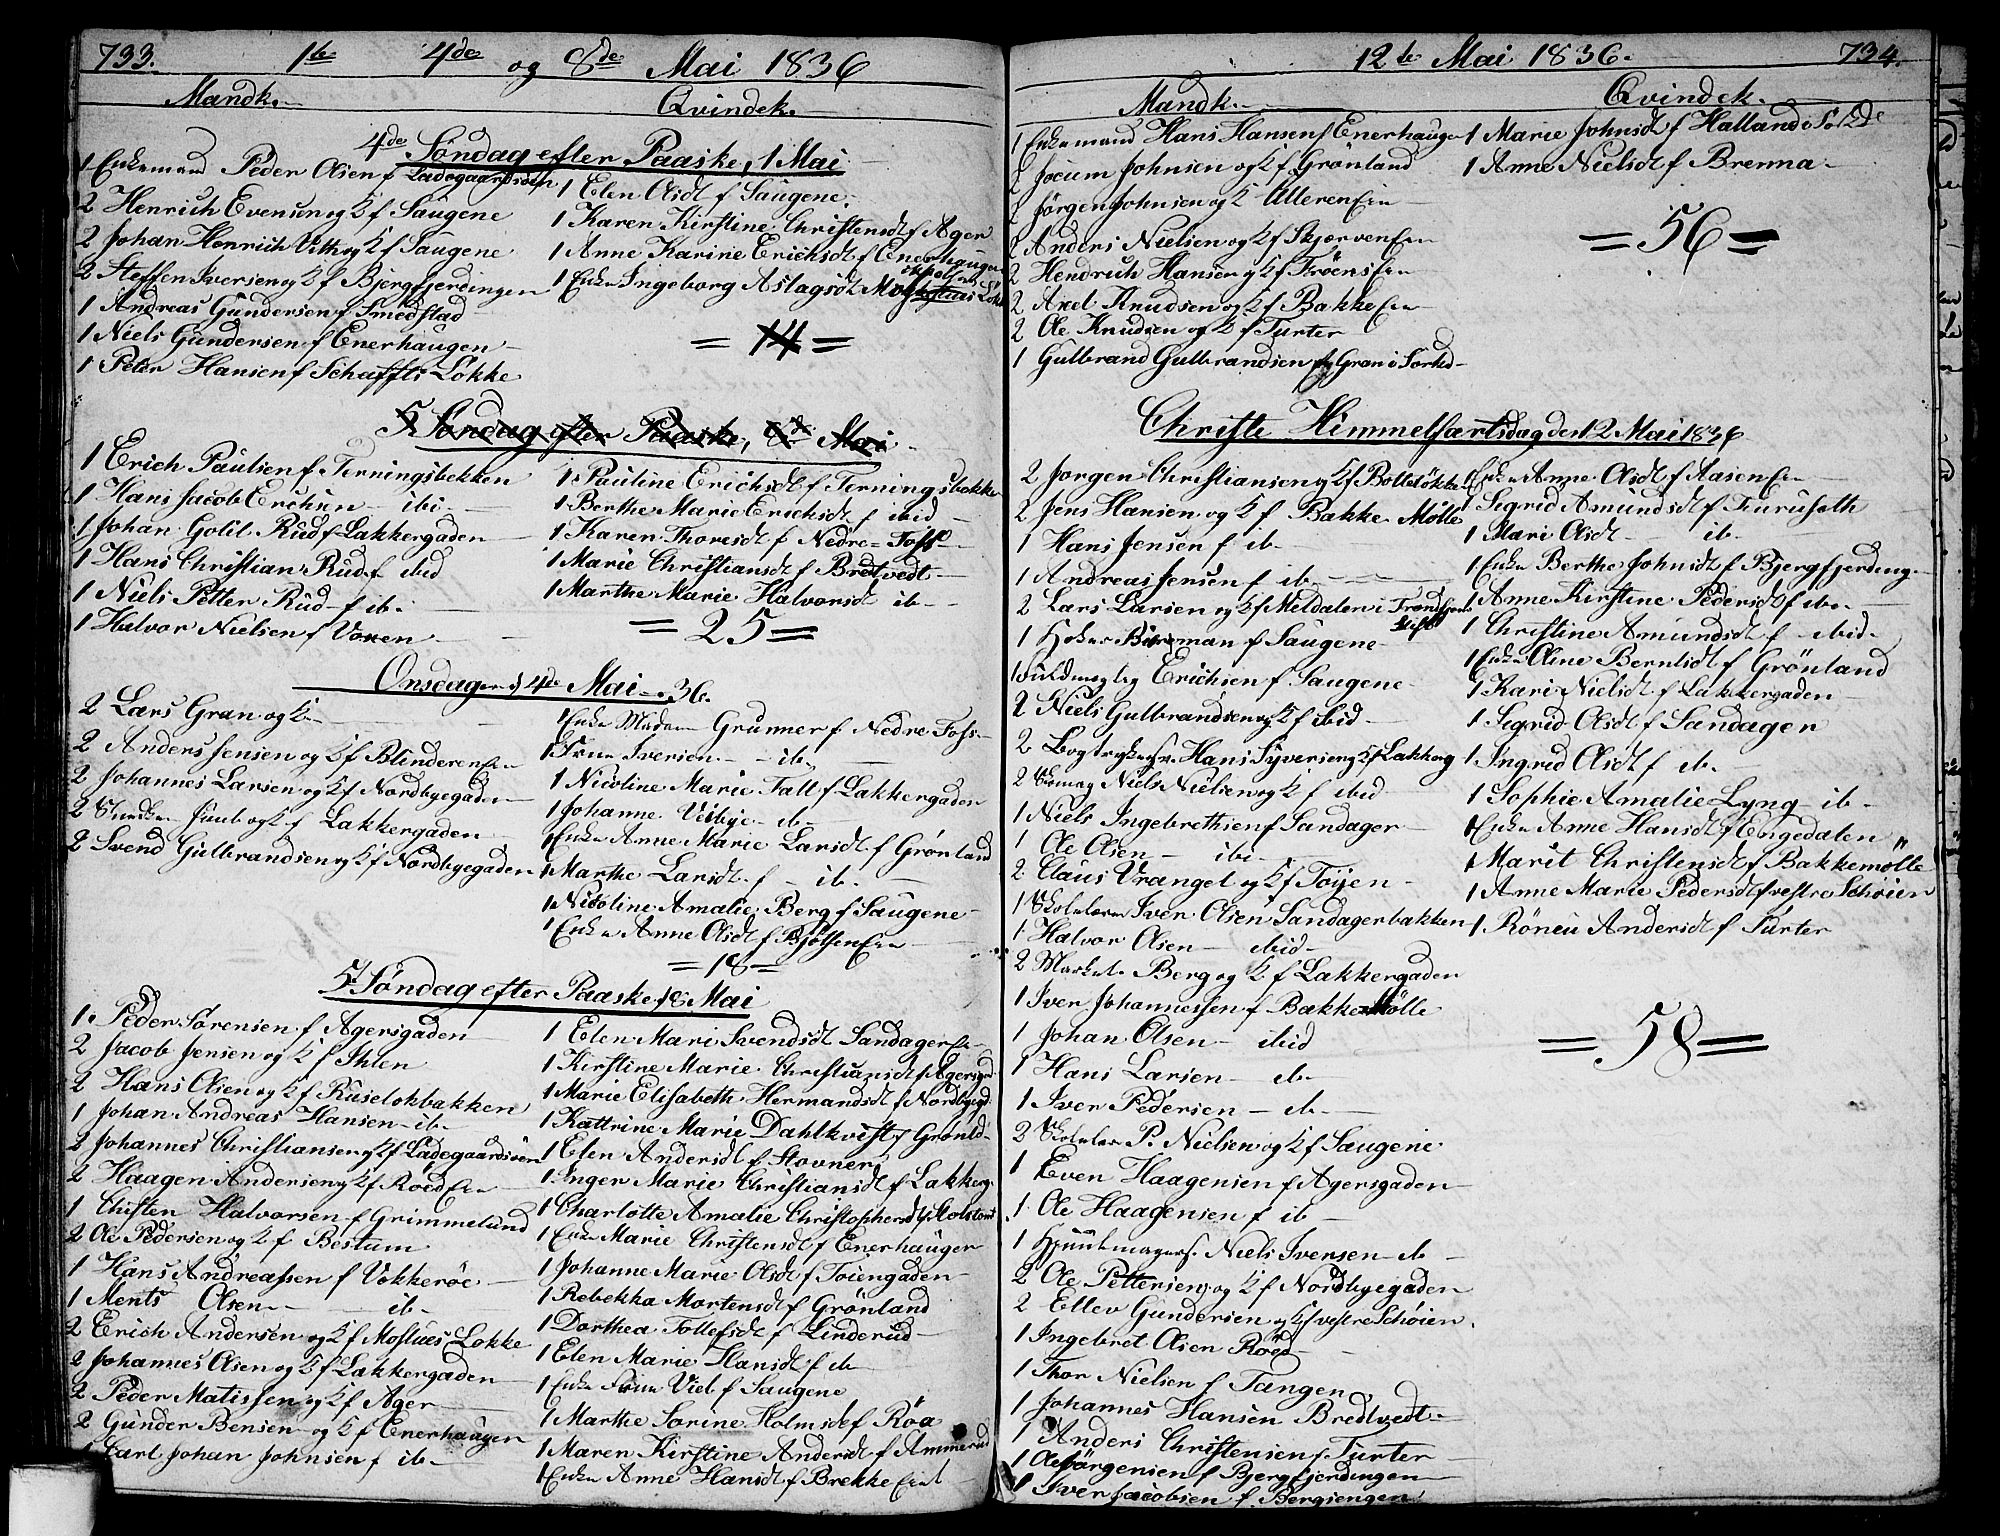 733. 1te 4de og 8de Mai 1836
Mandk. Qvindek.
4de Søndag efter Paaske, 1 Mai
1 Enkemand Peder Olsen f Ladegaardsøen
2 Henrich Evensen og K f Saugene
2 Johan Henrich Vith og K f Saugene
2 Steffen Iversen og K f Bjergfjerdingen
1 Andreas Gundersen f Smedstad
1 Niels Gundersen f Enerhaugen
1 Peter Hansen f Schafftls Løkke
1 Elen Olsdt f Saugene
1 Karen Kirstine Christensdt f Ager
1 Anne Karine Erichsdt f Enerhaugen
1 Enke Ingeborg Aslagsdt
= 14 =
5 Søndag efter Paaske, 8de Mai
1 Erich Paulsen f Terningsbekken
1 Hans Jacob Erichsen ibi
1 Johan Golil Rud f Lakkergaden
1 Hans Christian Rud f ibid
1 Niels Petter Rud f ib.
1 Halvor Nielsen f Voxen
1 Pauline Erichsdt f Terningsbekken
1 Berthe Marie Erichsdt f ibid
1 Karen Thoresdt f Nedre Foss
1 Marie Christiansdt f Bredtvedt
1 Marthe Marie Halvorsdt ib
= 25 =
Onsdagen d 4de Mai 36.
2 Lars Gran og K
2 Anders Jensen og K f Blinderen Eie
2 Johannes Larsen og K f Nordbyegaden
2 og K f Lakkergaden
2 Svend Gulbrandsen og K f Nordbyegaden
1 Enke Madam Grunner f Nedre Foss
1 Frue Iversen ib
1 Nicoline Marie Fall f Lakkergaden
1 Johanne Visbye ib
1 Enke Anne Marie Larsdt f Grønland
1 Marthe Larsdt f ib.
1 Nicoline Amalie Berg f Saugene
1 Enke Anne Olsdt f Bjølsen Eie
= 18 =
5 Søndag efter Paaske, 8 Mai
1 Peder Sørensen f Agersgaden
2 Jacob Jensen og K f Ihlen
2 Hans Olsen og K f Ruseløkbakken
1 Johan Andreas Hansen ib
2 Johannes Christiansen og K f Ladegaardsøen
2 Haagen Andersen og K f Røed Eie
1 Christen Halvorsen f Grimmelund
2 Ole Pedersen og K f Bestum
1 Hans Andreassen f Vækkerøe
1 Ments Olsen ib
2 Erich Andersen og K f Mostues Løkke
2 Johannes Olsen og K f Lakkergaden
2 Peder Matissen og K f Ager
2 Gunder Bensen og K f Enerhaugen
1 Carl Johan Johnsen f ib
1 Elen Marie Svendsdt Sandager Eie
1 Kirstine Marie Christiansdt f Agersgd
1 Marie Elisabeth Hermandsdt f Nordbyegd.
1 Kattrine Marie Dahlkvist f Grønld
1 Elen Andersdt f Stovner
1 Inger Marie Christiansdt f Lakkerg.
1 Charlotte Amalie Christophersdt f
1 Enke Marie Christensdt f Enerhaugen
1 Johanne Marie Olsdt f Tøiengaden
1 Rebekka Mortensdt f Grønland
1 Dorthea Tollefsdt f Linderud
1 Elen Marie Hansdt f ib
1 Enke Frue Viel f Saugene
1 Marthe Sørine Holmsdt f Røa
1 Maren Kirstine Andersdt f Ammerud
1 Enke Anne Hansdt f Brekke Eiet
12te Mai 1836. 734.
Mandk. Qvindek.
1 Enkemand Hans Hansen f Enerhaugen
2 Jocum Johnsen og K f Grønland
2 Jørgen Johnsen og K Ulleren Eie
2 Anders Nielsen og K f Skjerven Eie
2 Hendrich Hansen og K f Frøens Eie
2 Axel Knudsen og K f Bakke Eie
2 Ole Knudsen og K f Turter
1 Gulbrand Gulbrandsen f Gran i Sørkd
1 Marie Johnsdt f Halland i Sørkde
1 Anne Nielsdt f Brenna
= 56 =
Christe Himmelfartsdag den 12 Mai 1836
2 Jørgen Christiansen og K f Bolteløkken
2 Jens Hansen og K f Bakke Mølle
1 Hans Jensen f ib
1 Andreas Jensen f ib
2 Lars Larsen og K f Meldalen i Trondhjems Stift
1 Bierman f Saugene
1 Fuldmegtig Erichsen f Saugene
2 Niels Gulbrandsen og K f ibid
2 Bogtrykkersv. Hans Syversen og K f Lakkerg
2 Skomag Niels Nielsen og K f ibid
1 Niels Ingebrethsen f Sandager
1 Ole Olsen ibi
2 Claus Vrangel og K f Tøyen
1 Skolelærer Iver Olsen Sandagerbakken
1 Halvor Olsen ibid
2 Berg og K f Lakkergaden
1 Iver Johannessen f Bakke Mølle
1 Johan Olsen ibid
1 Hans Larsen ib
1 Iver Pedersen ib
2 Skolelær P. Nielsen og K f Saugene
1 Even Haagensen f Agersgaden
1 Ole Haagensen f ib
1 Niels Iversen ib
2 Ole Pettersen og K f Nordbyegaden
2 Ellev Gundersen og K f vestre Schøien
1 Ingebret Olsen Røed
1 Thor Nielsen f Tangen
1 Johannes Hansen Bredtvedt
1 Anders Christensen f Turter
1 Ole Jørgensen f Bjergfjerdingen
1 Iver Jacobsen f Bergsengen
1 Enke Anne Olsdt f Aasen Eie
1 Sigrid Amundsdt f Furuseth
1 Mari Olsdt ib
1 Enke Berthe Johnsdt f Bjergfjerding.
1 Anne Kirstine Pedersdt f ib
1 Christine Amundsdt f ibid
1 Enke Oline Berntsdt f Grønland
1 Kari Nielsdt f Lakkergaden
1 Sigrid Olsdt f Sandager
1 Ingrid Olsdt f ib
1 Sophie Amalie Lyng ib
1 Enke Anne Hansdt f Engedalen
1 Marit Christensdt f Bakkemølle
1 Anne Marie Pedersdt f vestre Schøien
1 Røneu Andersdt f Turter
= 58 =